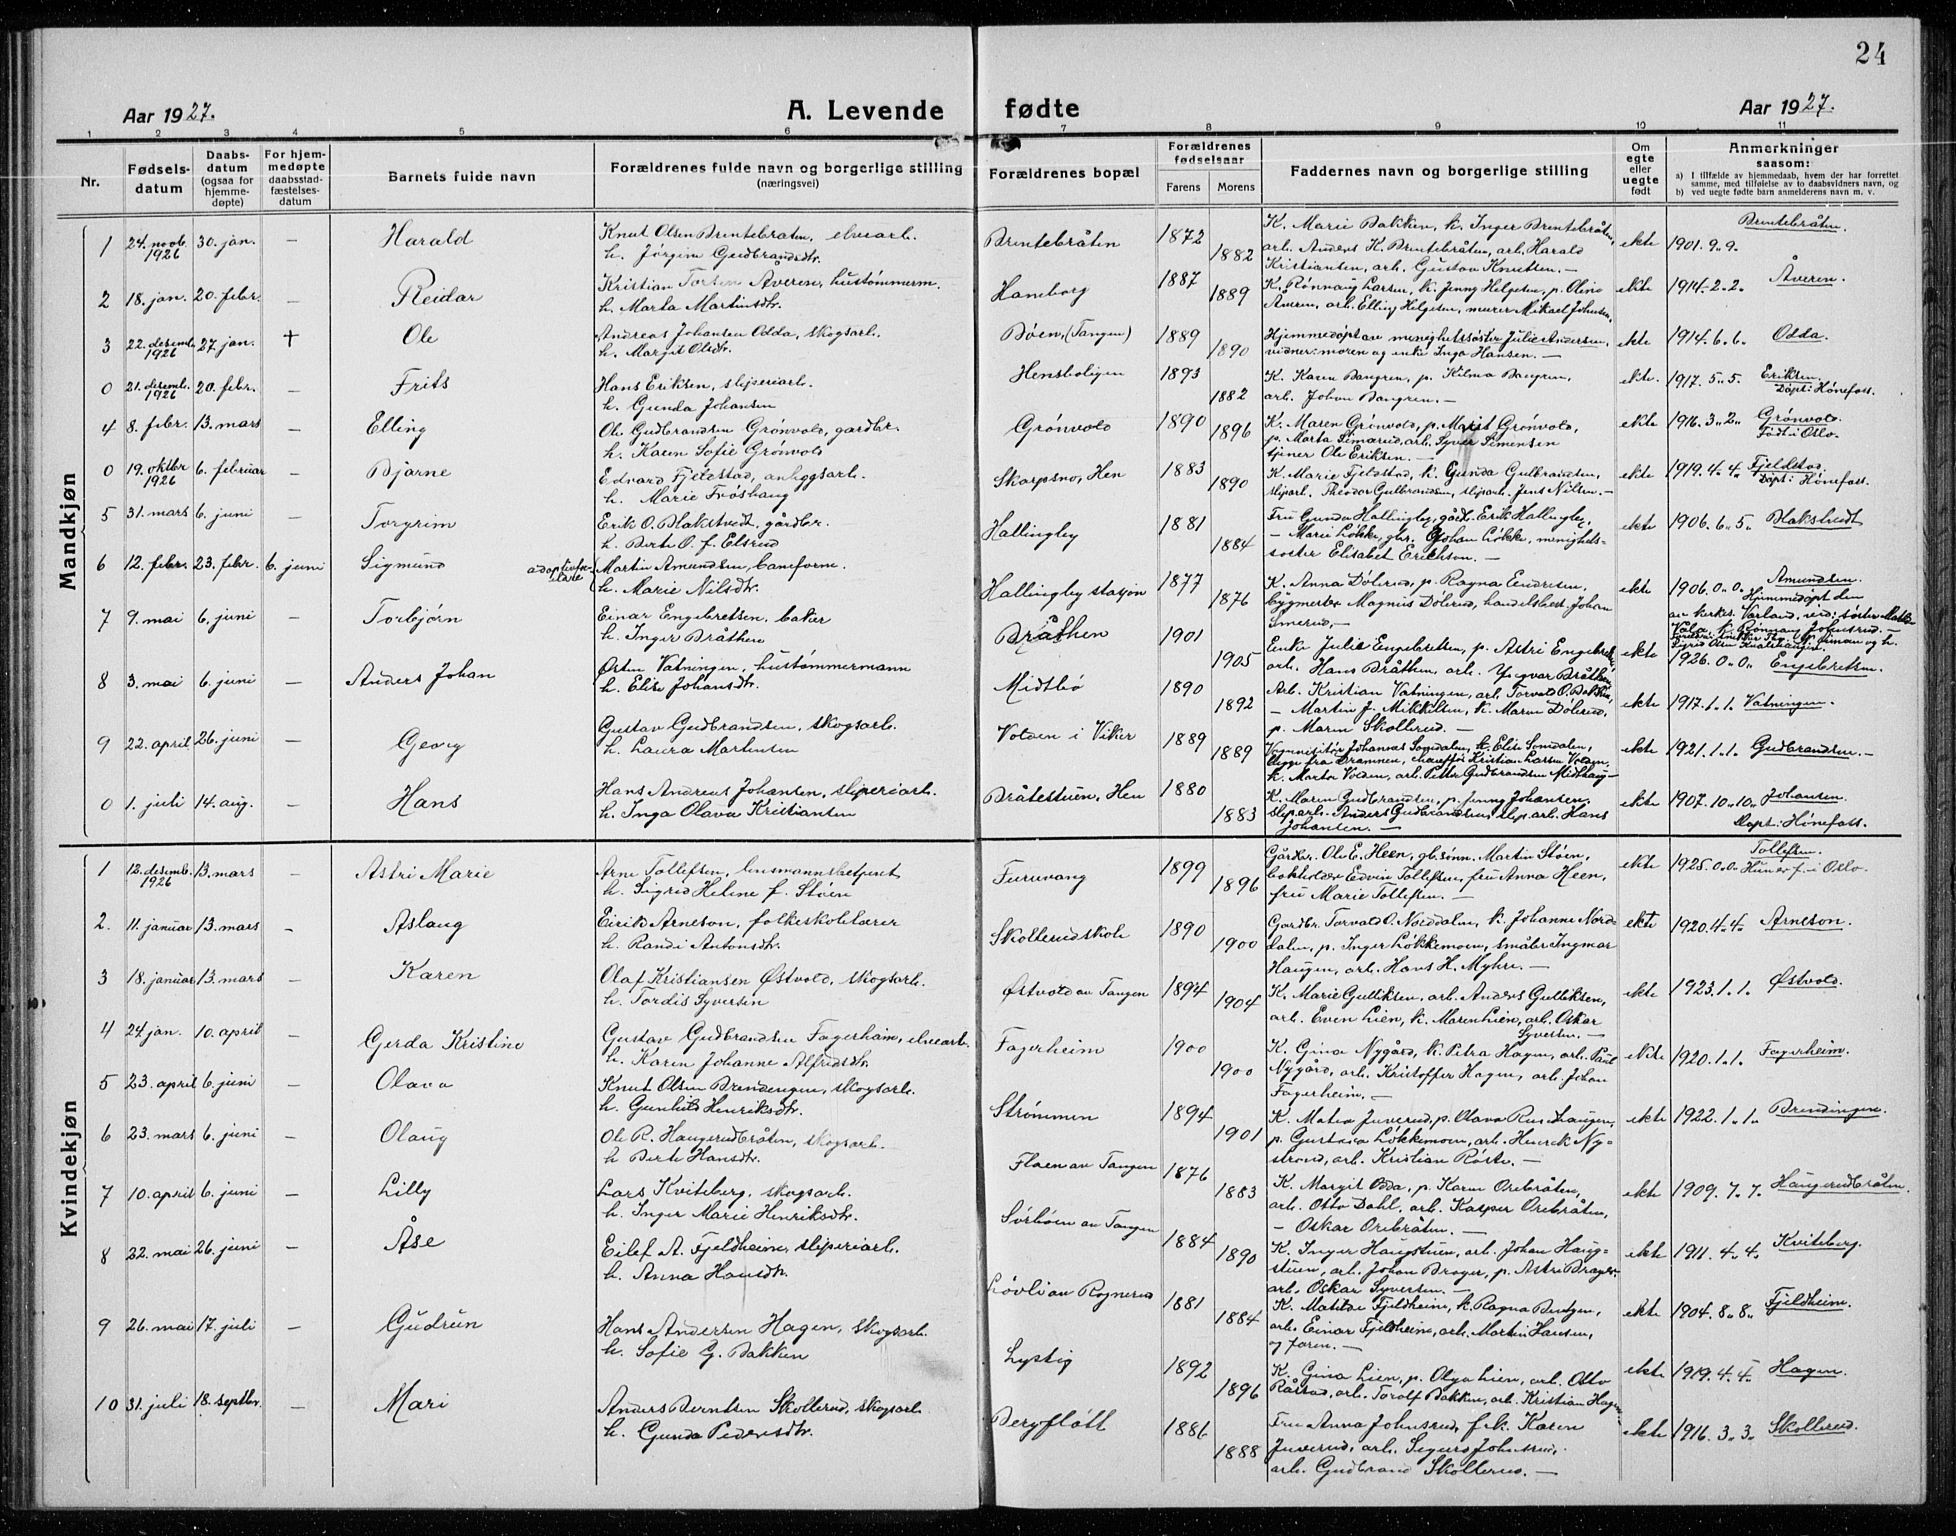 24
Aar 1927.
A. Levende fødte
Aar 1927.
1 2 3 4 5 6 7 8 9 10 11
Nr.
Fødsels-
datum
Daabs-
datum
(ogsaa for
hjemme-
døpte)
For hjem-
medøpte
daabsstad-
fæstelses-
datum
Barnets fulde navn
Forældrenes fulde navn og borgerlige stilling
(næringsvei)
Forældrenes bopæl
Forældrenes
fødselsaar
Farens
Morens
Faddernes navn og borgerlige stilling
Om
egte
eller
uegte
født
Anmerkninger
saasom:
a) I tilfælde av hjemmedaab, hvem der har forrettet
samme, med tilføielse av to daabsvidners navn, og
b) ved uegte fødte barn anmelderens navn m. v.
Mandkjøn
1 24. novb. 1926 30. jan. — Harald
Knut Olsen Brentebråten, elvearb.
h. Jørgine Gudbrandsdtr.
Brentebråten 1872 1882
K. Marie Bakken, k. Inger Brentebråten,
arb. Anders K. Brentebråten, arb. Harald
Kristiansen, arb. Gustav Knutsen. —
ekte 1901. 9. 9. Brentebråten.
2 18. jan. 20. febr. — Reidar
Kristian Torsen Åveren, hustømmerm.
h. Marta Martinsdtr.
Haneborg 1887 1889
K. Rønnaug Larsen, k. Jenny Helgesen, p. Oline
Averen, arb. Elling Helgesen, murer Mikael Johnsen.
ekte 1914. 2. 2. Åveren.
3 22. desemb. 1926 27. jan. † Ole
Andreas Johansen Odda, skogsarb.
h. Margit Olsdtr.
Bøen, (Tangen) 1889 1890
Hjemmedøpt av menighetssøster Julie Andersen,
vidner: moren og enke Inga Hansen. —
ekte 1914. 6. 6. Odda.
0 21. desemb. 1926 20. febr. — Frits
Hans Eriksen, sliperiarb.
h. Gunda Johansen
Hensboligen 1893 1882
K. Karen Bangren, p. Hilma Bangren,
arb. Johan Bangren. —
ekte. 1917. 5. 5. Eriksen.
Døpt i Hønefoss.
4 8. febr. 13. mars — Elling
Ole Gudbrandsen Grønvold, gardbr.
h. Karen Sofie Grønvold
Grønvold 1890 1896
K. Maren Grønvold, p. Marit Grønvold,
p. Marta Simarud, arb. Syver Simensen
tjener Ole Eriksen. —
ekte 1916. 3. 2. Grønvold.
Født i Oslo.
0 19. oktbr 1926 6. februar — Bjarne
Edvard Fjeldstad, anleggsarb.
h. Marie Frøshaug
Skarpsno, Hen 1883 1890
K. Marie Fjeldstad, k. Gunda Gulbrandsen,
sliparb. Theodor Gulbrandsen, sliparb. Jens Nilsen. —
ekte 1919. 4. 4. Fjeldstad.
Døpt i Hønefoss.
5 31. mars 6. juni — Torgrim
Erik O. Blakstvedt, gårdbr.
h. Berte O. f. Elsrud
Hallingby 1881 1884
Fru Gunda Hallingby, gårdb. Erik Hallingby,
— Marie Løkke, gbr. Johan Løkke, menighets-
søster Elisabet Erichsen. —
ekte 1906. 6. 5. Blakstvedt
6 12. febr. 23. febr. 6. juni Sigmund
adoptivfor-
eldre
Martin Amundsen, baneform.
h. Marie Nilsdtr.
Hallingby stasjon 1877 1876
K. Anna Dølerud, p. Ragna Endresen,
bygmester Magnus Dølerud, handelsbest. Johan
Smerud. —
ekte 1906. 0. 0. Amundsen.
Hjemmedøpt den
7 9. mai 6. juni — Torbjørn
Einar Engebretsen, baker
h. Inger Bråthen
Bråthen 1901 1905
Enke Julie Engebretsen, p. Astri Engebretsen,
arb. Hans Bråthen, arb. Yngvar Bråthen
ekte 1926. 0. 0. Engebretsen.
8 3. mai 6. juni — Anders Johan
Østen Vatningen, hustømmermann
h. Elise Johansdtr.
Midtbø 1890 1892
Arb. Kristian Vatningen, arb. Torvald O. Bakken,
— Martin J. Mikkelsen, k. Maren Dølerud,
p. Maren Skollerud. —
ekte 1917. 1. 1. Vatningen.
9 22. april 26. juni — Georg
Gustav Gudbrandsen, skogsarb.
h. Laura Martinsen
Volden i Viker 1889 1889
Vognvisitør Johannes Somdalen, k. Elise Somdalen,
begge fra Drammen, chauffør Kristian Larsen Volden,
k. Marta Volden, arb. Petter Gudbrandsen Midthaug —
ekte 1921. 1. 1. Gudbrandsen. —
0 1. juli 14. aug. — Hans
Hans Andreas Johansen, sliperiarb.
h. Inga Olava Kristiansen
Bråtestuen, Hen 1880 1883
K. Maren Gudbrandsen, p. Jenny Johansen.
sliparb. Anders Gudbrandsen, sliparb. Hans
Johansen. —
ekte 1907. 10. 10. Johansen.
Døpt i Hønefoss.
Kvindekjøn
1 12. desemb. 1926 13. mars — Astri Marie
Arne Tollefsen, lensmannsbetjent
h. Sigrid Helene f. Støen
Furuvang 1899 1896
Gårdbr. Ole E. Heen, gb.sønn. Martin Støen,
bokholder Edvin Tollefsen, fru Anna Heen,
fru Marie Tollefsen. —
ekte 1925. 0. 0. Tollefsen.
Hun er f. i Oslo.
2. 11. januar 13. mars — Aslaug
Eirik Arneson, folkeskolelærer
h. Randi Antonsdtr.
Skollerud skole 1890 1900
Gardbr. Torvald O. Norddalen, k. Johanne Nord-
dalen, p. Inger Løkkemoen, småbr. Ingmar
Haugen, arb. Hans H. Myhre. —
ekte 1920. 4. 4. Arneson.
3 18. januar 13. mars — Karen
Olaf Kristiansen Østvold, skogsarb.
h. Tordis Syversen
Østvold av Tangen 1894 1904
K. Marie Gulliksen, arb. Anders Gulliksen,
arb. Even Lien, k. Maren Lien, arb. Oskar
Syversen. —
ekte 1923. 1. 1. Østvold.
4 24. jan. 10. april — Gerda Kristine
Gustav Gudbrandsen Fagerheim, elvearb.
h. Karen Johanne Alfredsdtr.
Fagerheim 1900 1900
K. Gina Nygård, k. Petra Hagen, arb. Paul
Nygård, arb. Kristoffer Hagen, arb. Johan
Fagerheim. —
ekte 1920. 1. 1. Fagerheim.
5 23. april 6. juni — Olava
Knut Olsen Brendengen, skogsarb.
h. Gunhild Henriksdtr.
Strømmen 1894 1901
K. Matea Juverud, p. Olava Rusthaugen,
p. Gustava Løkkemoen, arb. Henrik Ny-
strand, arb. Kristian Røste. —
ekte 1922. 1. 1. Brendingen.
6 23. mars 6. juni — Olaug
Ole R. Haugerudbråten, skogsarb.
h. Berte Hansdtr.
Flaen av Tangen 1876 1883
K. Margit Odda, p. Karen Orebråten,
arb. Otto Dahl, arb. Kasper Orebråten,
— Oskar Orebråten. —
ekte 1909. 7. 7. Haugerudbråten.
7 10. april 6. juni — Lilly
Lars Kviteberg, skogsarb.
h. Inger Marie Henriksdtr.
Sørbøen av Tangen 1884 1890
K. Inger Haugstuen, arb. Johan Haug-
stuen, arb. Johan Brager, p. Astri Brager,
arb. Oskar Syversen. —
ekte 1911. 4. 4. Kviteberg.
8 22. mai 26. juni — Åse
Eilef A. Fjeldheim, sliperiarb.
h. Anna Hansdtr.
Løvli av Rognerud 1881 1884
K. Matilde Fjeldheim, k. Ragna Bentzen,
arb. Einar Fjeldheim, arb. Martin Hansen,
og faren. —
ekte 1904. 8. 8. Fjeldheim.
9 26. mai 17. juli — Gudrun
Hans Andersen Hagen, skogsarb.
h. Sofie G. Bakken
Lystig 1892 1896
K. Gina Lien, p. Olga Lien, arb. Otto
Råstad, arb. Toralf Bakken, arb. Kristian Hagen
ekte 1919. 4. 4. Hagen.
10 31. juli 18. septbr. — Mari
Anders Berntsen Skollerud, skogsarb.
h. Gunda Pedersdtr.
Bergfløtt 1886 1888
Fru Anna Johnsrud, frk. Karen
Juverud, arb. Sigurd Johnsrud,
arb. Gudbrand Skollerud. —
ekte 1916. 3. 3. Skollerud.